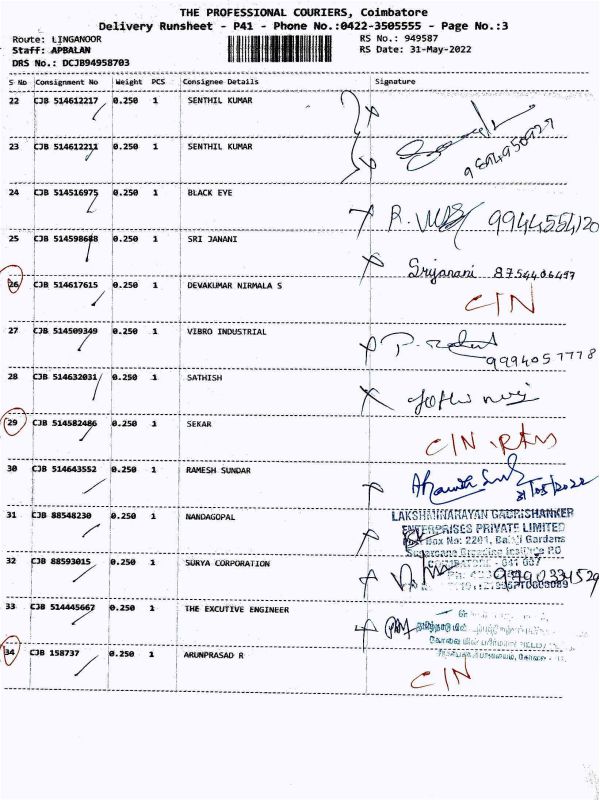 THE PROFESSIONAL COURIERS, Coimbatore
Delivery Runsheet - P41 - Phone No.:0422-3505555 - Page No.:3
Route: LINGANOOR RS No.: 949587
Staff: APBALAN RS Date: 31-May-2022
DRS No.: DCJB94958703
S No Consignment No Weight PCS Consignee Details Signature
22 CJB 514612217 0.250 1 SENTHIL KUMAR
23 CJB 514612211 0.250 1 SENTHIL KUMAR
24 CJB 514516975 0.250 1 BLACK EYE 9944554120
25 CJB 514598688 0.250 1 SRI JANANI Srijanani 8754406497
26 CJB 514617615 0.250 1 DEVAKUMAR NIRMALA S C/N
27 CJB 514509349 0.250 1 VIBRO INDUSTRIAL 9994057778
28 CJB 514632031 0.250 1 SATHISH
29 CJB 514582486 0.250 1 SEKAR C/N
30 CJB 514643552 0.250 1 RAMESH SUNDAR 31/05/2022
31 CJB 88548230 0.250 1 NANDAGOPAL LAKSHMINARAYAN GAURISHANKER
ENTERPRISES PRIVATE LIMITED
Box No: 2201, Balaji Gardens
32 CJB 88593015 0.250 1 SURYA CORPORATION 9790331529
33 CJB 514445667 0.250 1 THE EXCUTIVE ENGINEER
34 CJB 158737 0.250 1 ARUNPRASAD R C/N